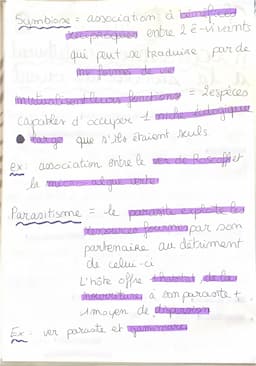 Symbiose = association à bénéfices
réciproques entre 2 ê-vivants
qui peut se traduire par de
formes de
mutualisent leurs fonctions = 2 espèces
capables d'occuper 1 niche écologique
large que s'ils étaient seuls
ex: association entre le ver de Roscoff et
la micro algue verte
Parasitisme = le parasite exploite les
ressources fournies par son
partenaire au détriment
de celui-ci
L'hôte offre l'habitat, de la
nourriture à son parasite +
1 moyen de dispersion
Ex: ver parasite et gammare